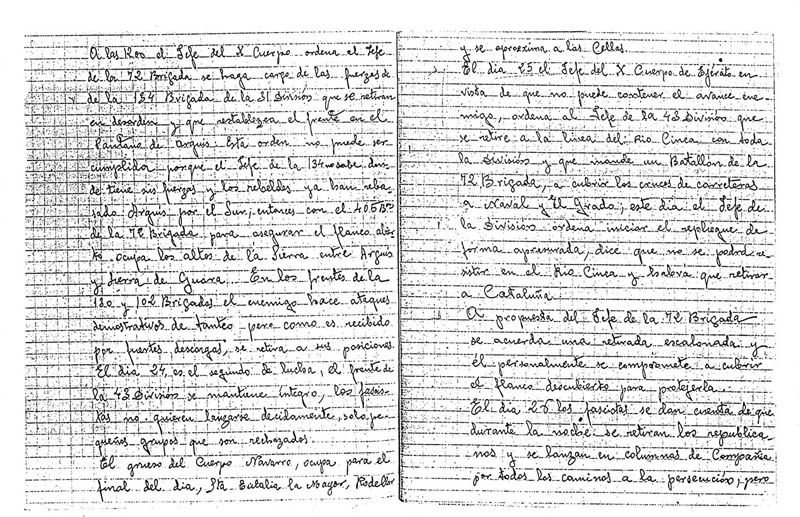 A las 12,00 el Jefe del X Cuerpo ordena al Jefe
de la 72 Brigada se haga cargo de las fuerzas
de la 134 Brigada de la 31 División que se retiran
en desorden y que restablezca el frente en el
Pantano de Arguis. Esta orden no puede ser
cumplida porque el Jefe de la 134 no sabe don
de tiene sus fuerzas y los rebeldes ya han reba
sado Arguis por el Sur, entonces con el 405 Bón
de la 72 Brigada para asegurar el flanco abier
to ocupa los altos de la Sierra entre Arguis
y Sierra de Guara. En los frentes de la
130 y 102 Brigadas el enemigo hace ataques
demostrativos de tanteo pero como es recibido
por fuertes descargas, se retira a sus posiciones
El dia 24, es el segundo de lucha, el frente de
la 43 División se mantiene íntegro, los fascis-
tas no quieren lanzarse decididamente, solo pe-
queños grupos que son rechazados.
El grueso del Cuerpo Navarro, ocupa para el
final del dia, Sta Eulalia la Mayor, Rodellar
y se aproxima a las Cellas.
El dia 25 el Jefe del X Cuerpo de Ejército en
vista de que no puede contener el avance ene-
migo, ordena al Jefe de la 43 División que
se retire a la linea del Rio Cinca con toda
la División y que mande un Batallón de la
72 Brigada, a cubrir los cruces de carreteras
a Naval y El Grado; este dia el Jefe de
la División ordena iniciar el repliegue de
forma apresurada, dice que no se podrá re-
sistir en el Rio Cinca y habra que retirar
a Cataluña.
A propuesta del Jefe de la 72 Brigada
se acuerda una retirada escalonada y
él personalmente se compromete a cubrir
el flanco descubierto para protejerla.
El dia 26 los fascistas se dan cuenta de que
durante la noche se retiran los republica
nos y se lanzan en columnas de Compañia
por todos los caminos a la persecución, pero